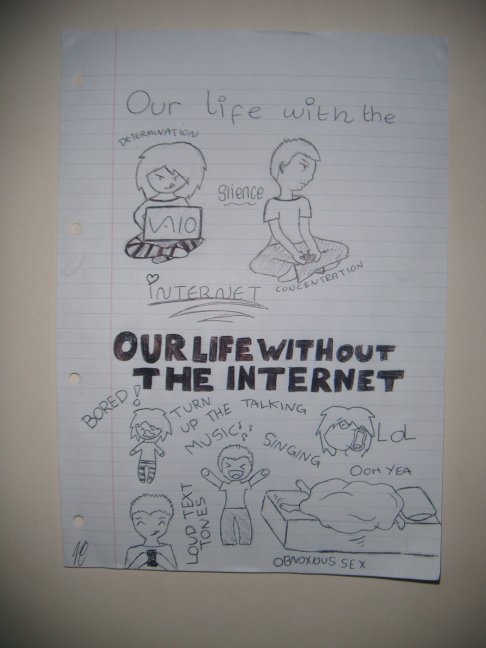 Our life with the
DETERMINATION
Slience
VAIO
CONCENTRATION
INTERNET
OUR LIFE WITHOUT
THE INTERNET
BORED!
TURN
UP THE
MUSIC!!
TALKING
SINGING
LOL
OOH YEA
LOUD TEXT
TONES
OBNOXIOUS SEX